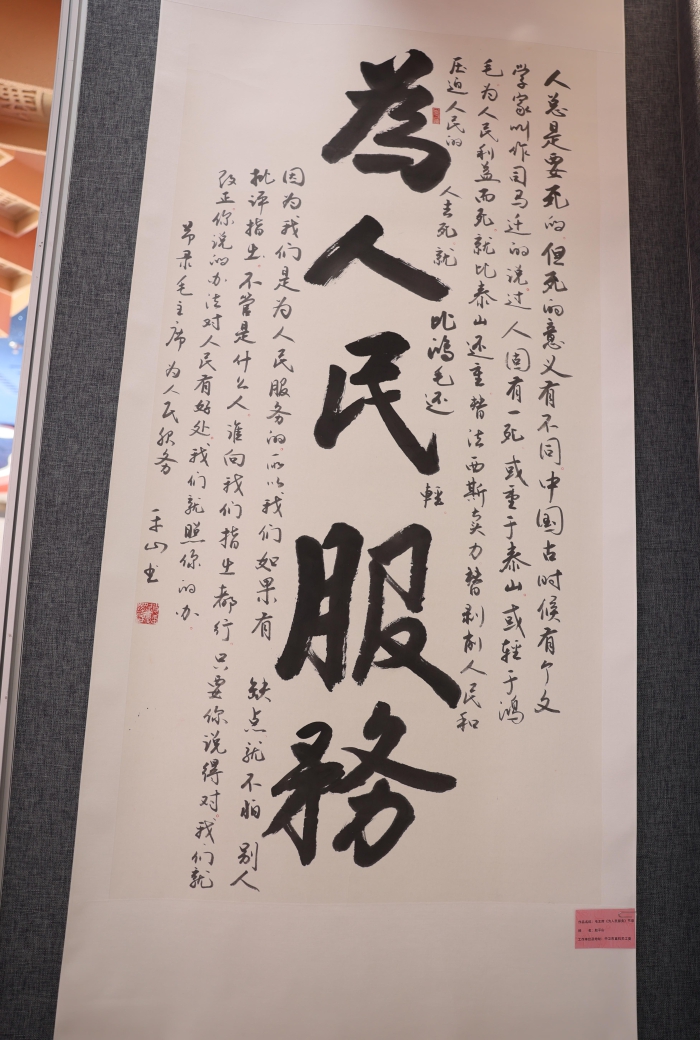 人总是要死的但死的意义有不同中国古时候有个文
学家叫作司马迁的说过人固有一死或重于泰山或轻于鸿
毛为人民利益而死就比泰山还重替法西斯卖力替剥削人民和
压迫人民的
人去死就
比鸿毛还
輕
為人民服務
因为我们是为人民服务的所以我们如果有缺点就不怕别人
批评指出不管是什么人谁向我们指出都行只要你说得对我们就
改正你说的办法对人民有好处我们就照你的办
节录毛主席为人民服务
平山书